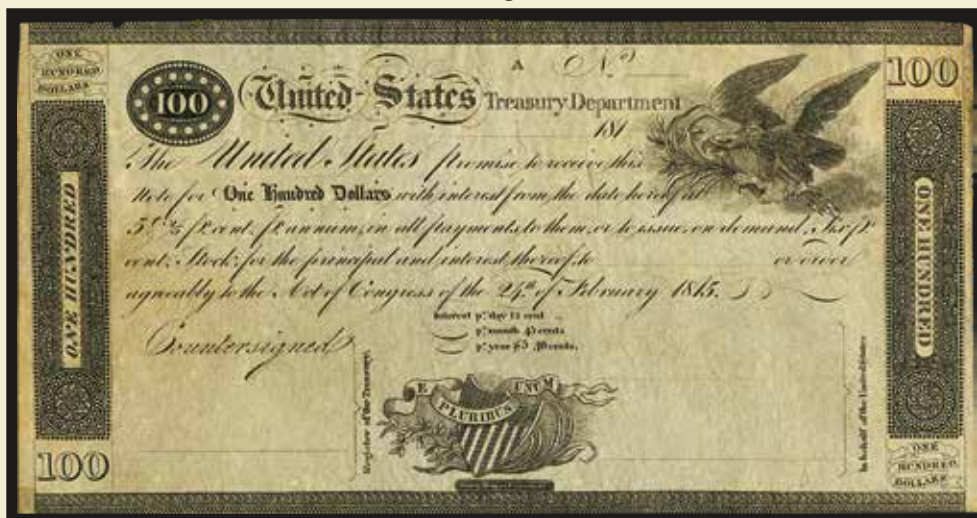 ONE
HUNDRED
DOLLARS
A Nº
100
100 United States Treasury Department
181
The United States promise to receive this
Note for One Hundred Dollars with interest from the date hereof at
5 2/5 pr cent. pr annum, in all payments to them, or to issue, on demand, Six pr
cent. Stock, for the principal and interest thereof, to or order
agreeably to the Act of Congress of the 24th of February 1815.
Interest pr day 1½ cent
pr month 45 cents
pr year $5 40 cents.
Countersigned
ONE HUNDRED
ONE HUNDRED
Register of the Treasury.
In behalf of the United States
E PLURIBUS UNUM
100
ONE
HUNDRED
DOLLARS